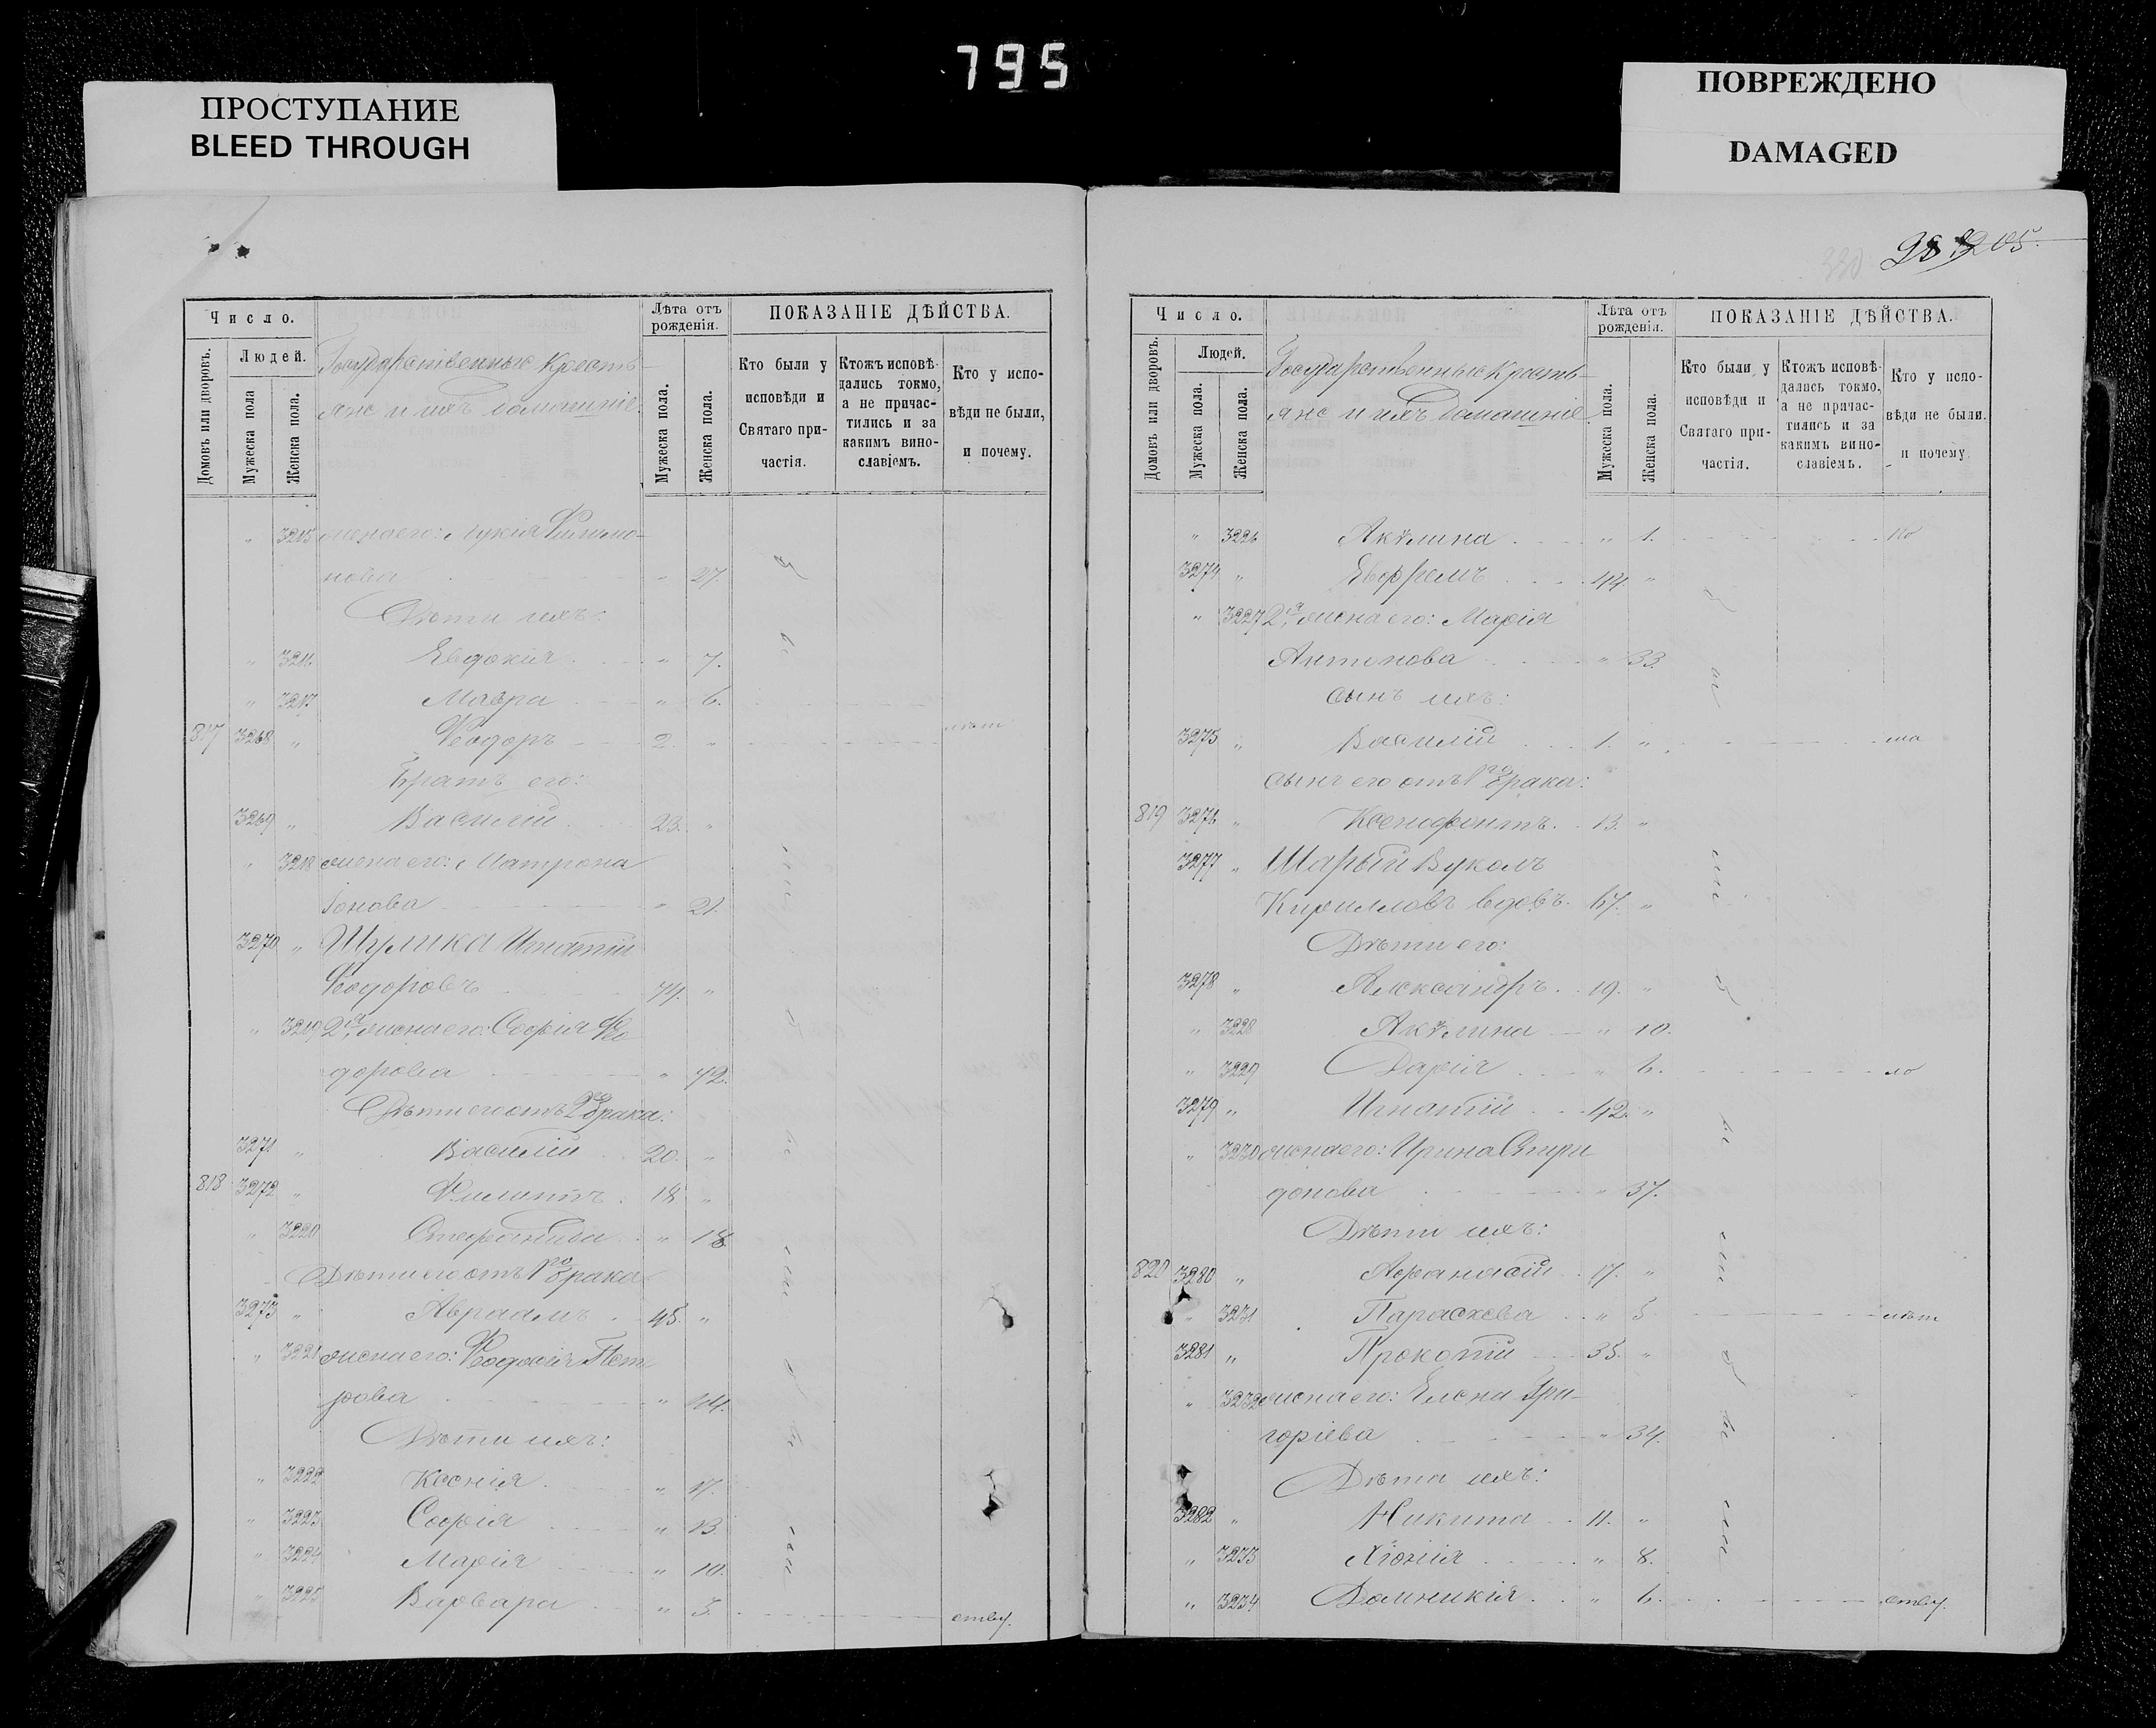 795
ПРОСТУПАНИЕ
BLEED THROUGH
ПОВРЕЖДЕНО
DAMAGED
Число.
Лѣта отъ рожденія.
ПОКАЗАНІЕ ДѢЙСТВА.
Домовъ или дворовъ.
Людей.
Мужеска пола
Женска пола.
Государственные кресть-
яне и ихъ домашніе
Мужеска пола.
Женска пола.
Кто были у исповѣди и Святаго при-частія.
Ктожъ исповѣ-дались токмо, а не причас-тились и за какимъ вино-славіемъ.
Кто у испо-вѣди не были, и почему.
" 3215 жена его: Лукія Филимо-
нова " 27.
Дѣти ихъ:
" 3216. Евдокія " 7.
" 3217 Мавра " 6.
817 3268 " Ѳеодоръ 2. " лѣт
Братъ его:
3269 " Василій 23. "
" 3218 жена его: Матрона
Іонова " 21.
3270 " Шулика Игнатій
Ѳеодоровъ 74. "
" 3219 2я жена его: Софія Ѳео
дорова " 72.
Дѣти его отъ 2го брака:
3271 " Василій 20. "
818 3272 " Филиппъ 18 "
" 3220 Стефанида " 18.
Дѣти его отъ 1го брака
3273 " Авраамъ 45. "
" 3221 жена его: Ѳеодосія Пет
рова " 44.
Дѣти ихъ:
" 3222 Ксенія " 17.
" 3223 Софія " 13
" 3224 Марія " 10.
" 3225 Варвара " 5. ству.
205.
Число.
Лѣта отъ рожденія.
ПОКАЗАНІЕ ДѢЙСТВА.
Домовъ или дворовъ.
Людей.
Мужеска пола.
Женска пола.
Государственные кресть-
яне и ихъ домашніе
Мужеска пола.
Женска пола.
Кто были у исповѣди и Святаго при-частія.
Ктожъ исповѣ-дались токмо, а не причас-тились и за какимъ вино-славіемъ.
Кто у испо-вѣди не были. и почему.
" 3226 Акѵлина " 1.
3274 " Евфремъ 44 "
" 3227 2я жена его: Марія
Антонова " 33.
сынъ ихъ:
3275 " Василій 1. " ма
сынъ его отъ 1го брака:
819 3276 " Ксенофонтъ 13. "
3277 " Шарый Вуколъ
Кирилловъ вдовъ. 67. "
Дѣти его:
3278 " Александръ 19. "
" 3228 Акѵлина " 10.
" 3229 Дарія " 6. ло
3279 " Игнатій 42. "
" 3230 жена его: Ирина Спири
донова " 37.
Дѣти ихъ:
820 3280 " Афанасій 17. "
" 3231 Параскева " 5 лѣт
3281 " Прокопій 35. "
" 3232 жена его: Елена Гри-
горіева " 34.
Дѣти ихъ:
3282 " Никита 11. "
" 3233 Хіонія " 8.
" 3234 Домникія " 6. ству.